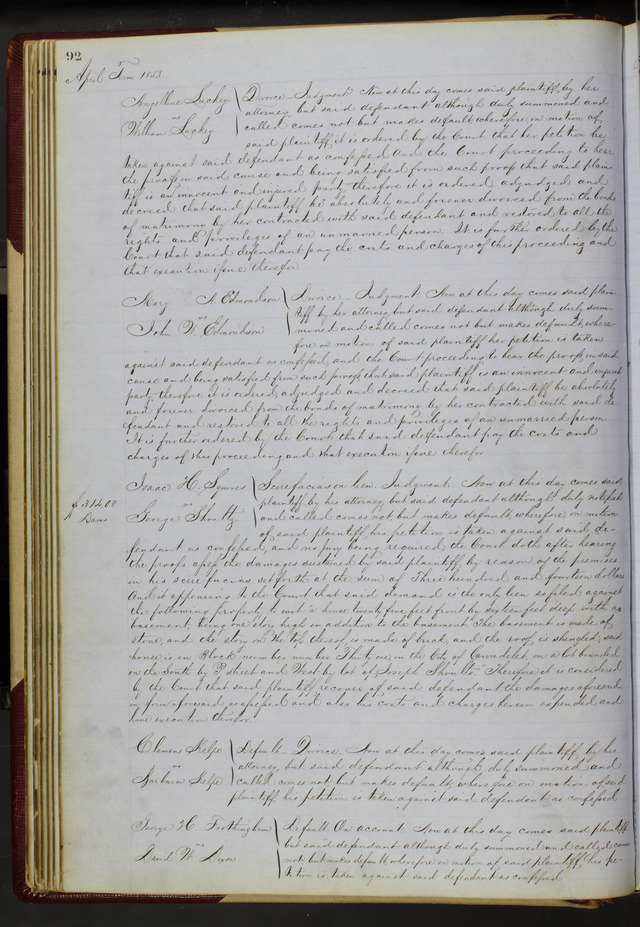 92
April Term 1853
Angelline Luckey
vs
William Luckey
Divorce - Judgment Now at this day comes said plaintiff by her
attorney but said defendant although duly summoned and
called comes not but makes default wherefore on motion of
said plaintiff it is ordered by the Court that her petition be
taken against said defendant as confessed And the Court proceeding to hear
the proofs in said cause and being satisfied from such proofs that said plain
tiff is an innocent and injured party, therefore it is ordered adjudged and
decreed that said plaintiff be absolutely and forever divorced from the bonds
of matrimony by her contracted with said defendant and restored to all the
rights and privileges of an unmarried person. It is further ordered by the
Court that said defendant pay the costs and charges of this proceeding and
that execution issue therefor
Mary A. Edmondson
vs
John W. Edmondson
Divorce - Judgment Now at this day comes said plain-
tiff by her attorney, but said defendant although duly sum-
moned and called comes not but makes default, where-
fore on motion of said plaintiff her petition is taken
against said defendant as confessed, and the Court proceeding to hear the proofs in said
cause and being satisfied from such proofs that said plaintiff is an innocent and injured
party therefore it is ordered, adjudged and decreed that said plaintiff be absolutely
and forever divorced from the bonds of matrimony by her contracted with said de-
fendant and restored to all the rights and privileges of an unmarried person
It is further ordered by the Court that said defendant pay the costs and
charges of this proceeding and that execution issue therefor
$314.00
Dams
Isaac H. Squires
vs
George Shoultz
Scire facias on lien. Judgment. Now at this day comes said
plaintiff by his attorney but said defendant although duly notified
and called comes not, but makes default, wherefore on motion
of said plaintiff his petition is taken against said de-
fendant as confessed, and no jury being required, the Court doth after hearing
the proofs assess the damages sustained by said plaintiff by reason of the premises
in his scire facias set forth at the sum of Three hundred and fourteen dollars
And it appearing to the Court that said demand is the only lien so filed against
the following property to wit "a house twenty five feet front by sixteen feet deep with a
basement, being one story high in addition to the basement. The basement is made of
stone, and the story on the top thereof, is made of brick, and the roof is shingled, said
house is in Block number number Thirty one, in the City of Carondelet, on a lot bounded
on the South by P street and West by lot of Joseph Shoults" Therefore it is considered
by the Court that said plaintiff recover of said defendant the damages aforesaid
in form aforesaid assessed and also his costs and charges herein expended and
have execution therefor
Clemens Kelpe
vs
Barbara Kelpe
Default - Divorce. Now at this day comes said plaintiff by his
attorney, but said defendant although duly summoned and
called comes not but makes default, wherefore on motion of said
plaintiff his petition is taken against said defendant as confessed
George H. Frothingham
vs
David W. Dixon
Default On account Now at this day comes said plaintiff
but said defendant although duly summoned and called comes
not but makes default wherefore on motion of said plaintiff, his pe-
tition is taken against said defendant as confessed